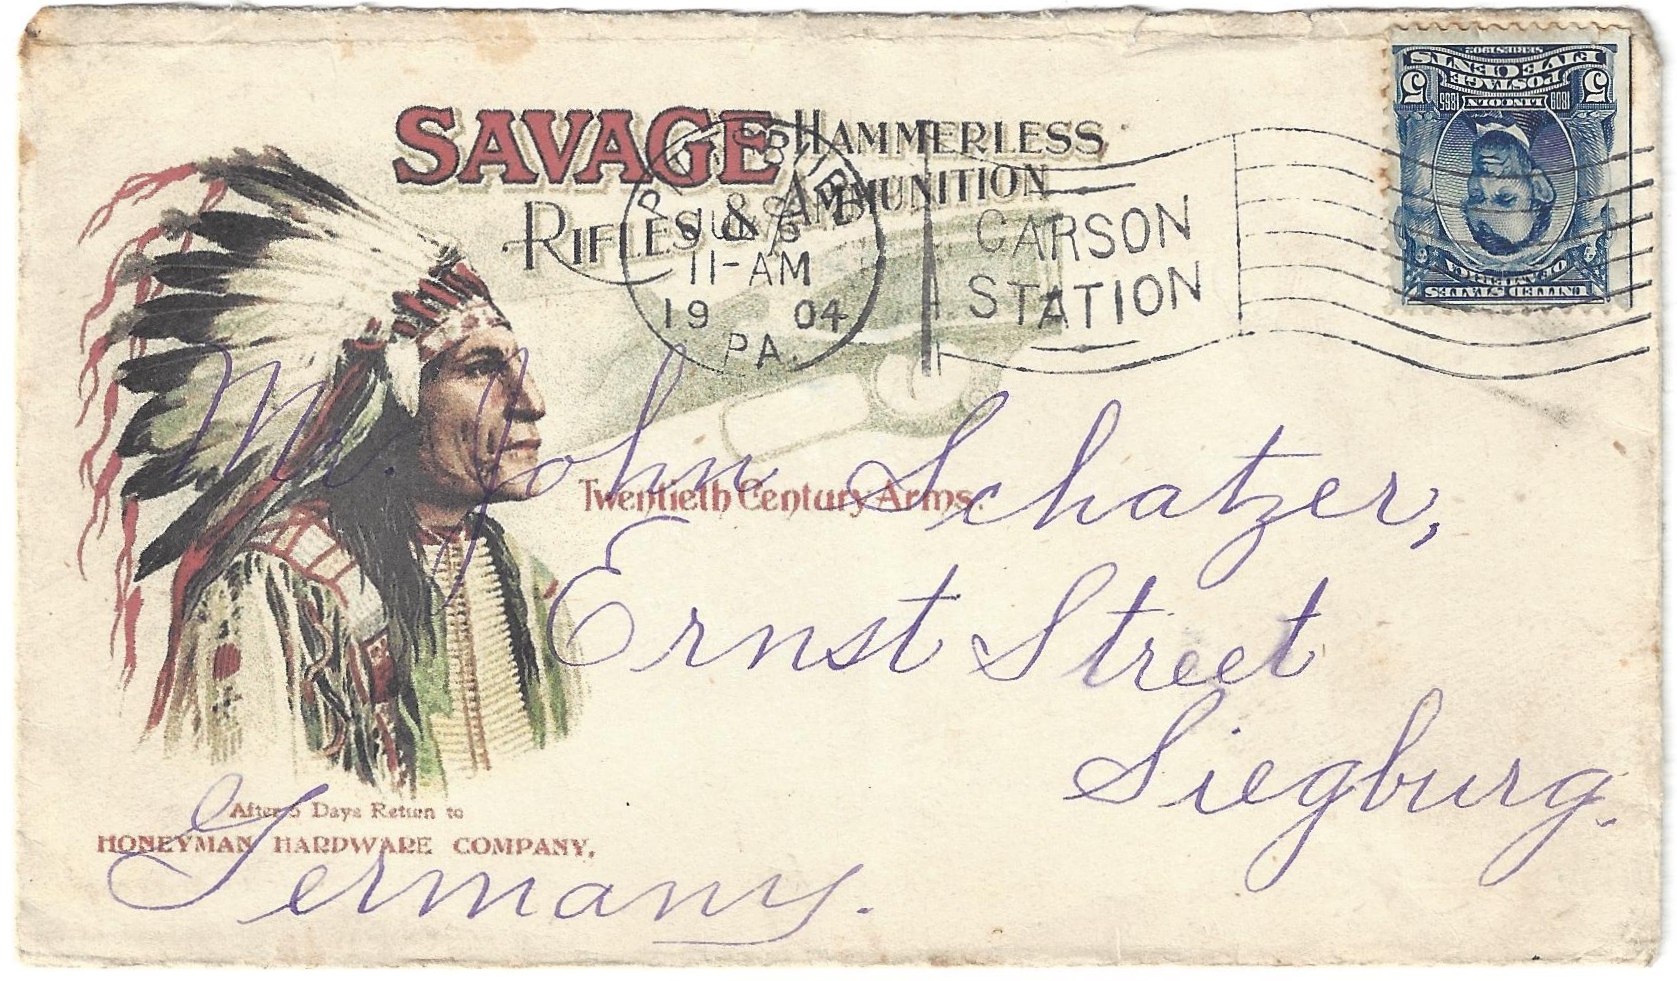 SAVAGE HAMMERLESS
RIFLES & AMMUNITION
PITTSBURG
JUN 6
11-AM
19 04
PA.
CARSON
STATION
SERIES 1902
FIVE CENTS
POSTAGE
5 1809 LINCOLN 1865 5
UNITED STATES
OF AMERICA
Twentieth Century Arms.
Mr. John Schatzer,
Ernst Street
Siegburg.
Germany.
After 5 Days Return to
HONEYMAN HARDWARE COMPANY,